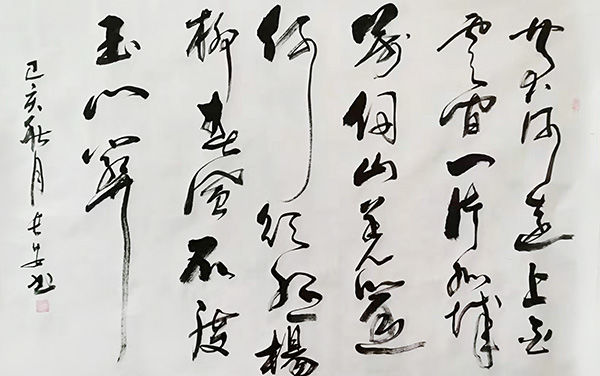 黄河遠上白
雲間一片孤城
萬仞山羌笛
何須怨楊
柳春風不度
玉門關
己亥秋月長安书